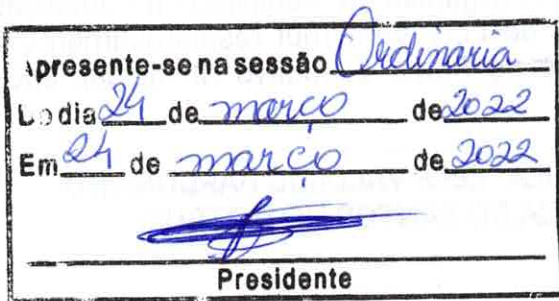 apresente-se na sessão Ordinaria
Do dia 24 de março de 2022
Em 24 de março de 2022
Presidente